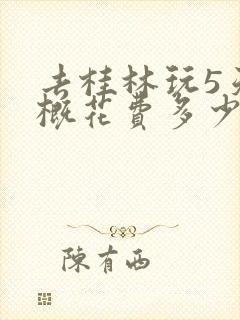 去桂林玩5天
概花费多少
陈有西